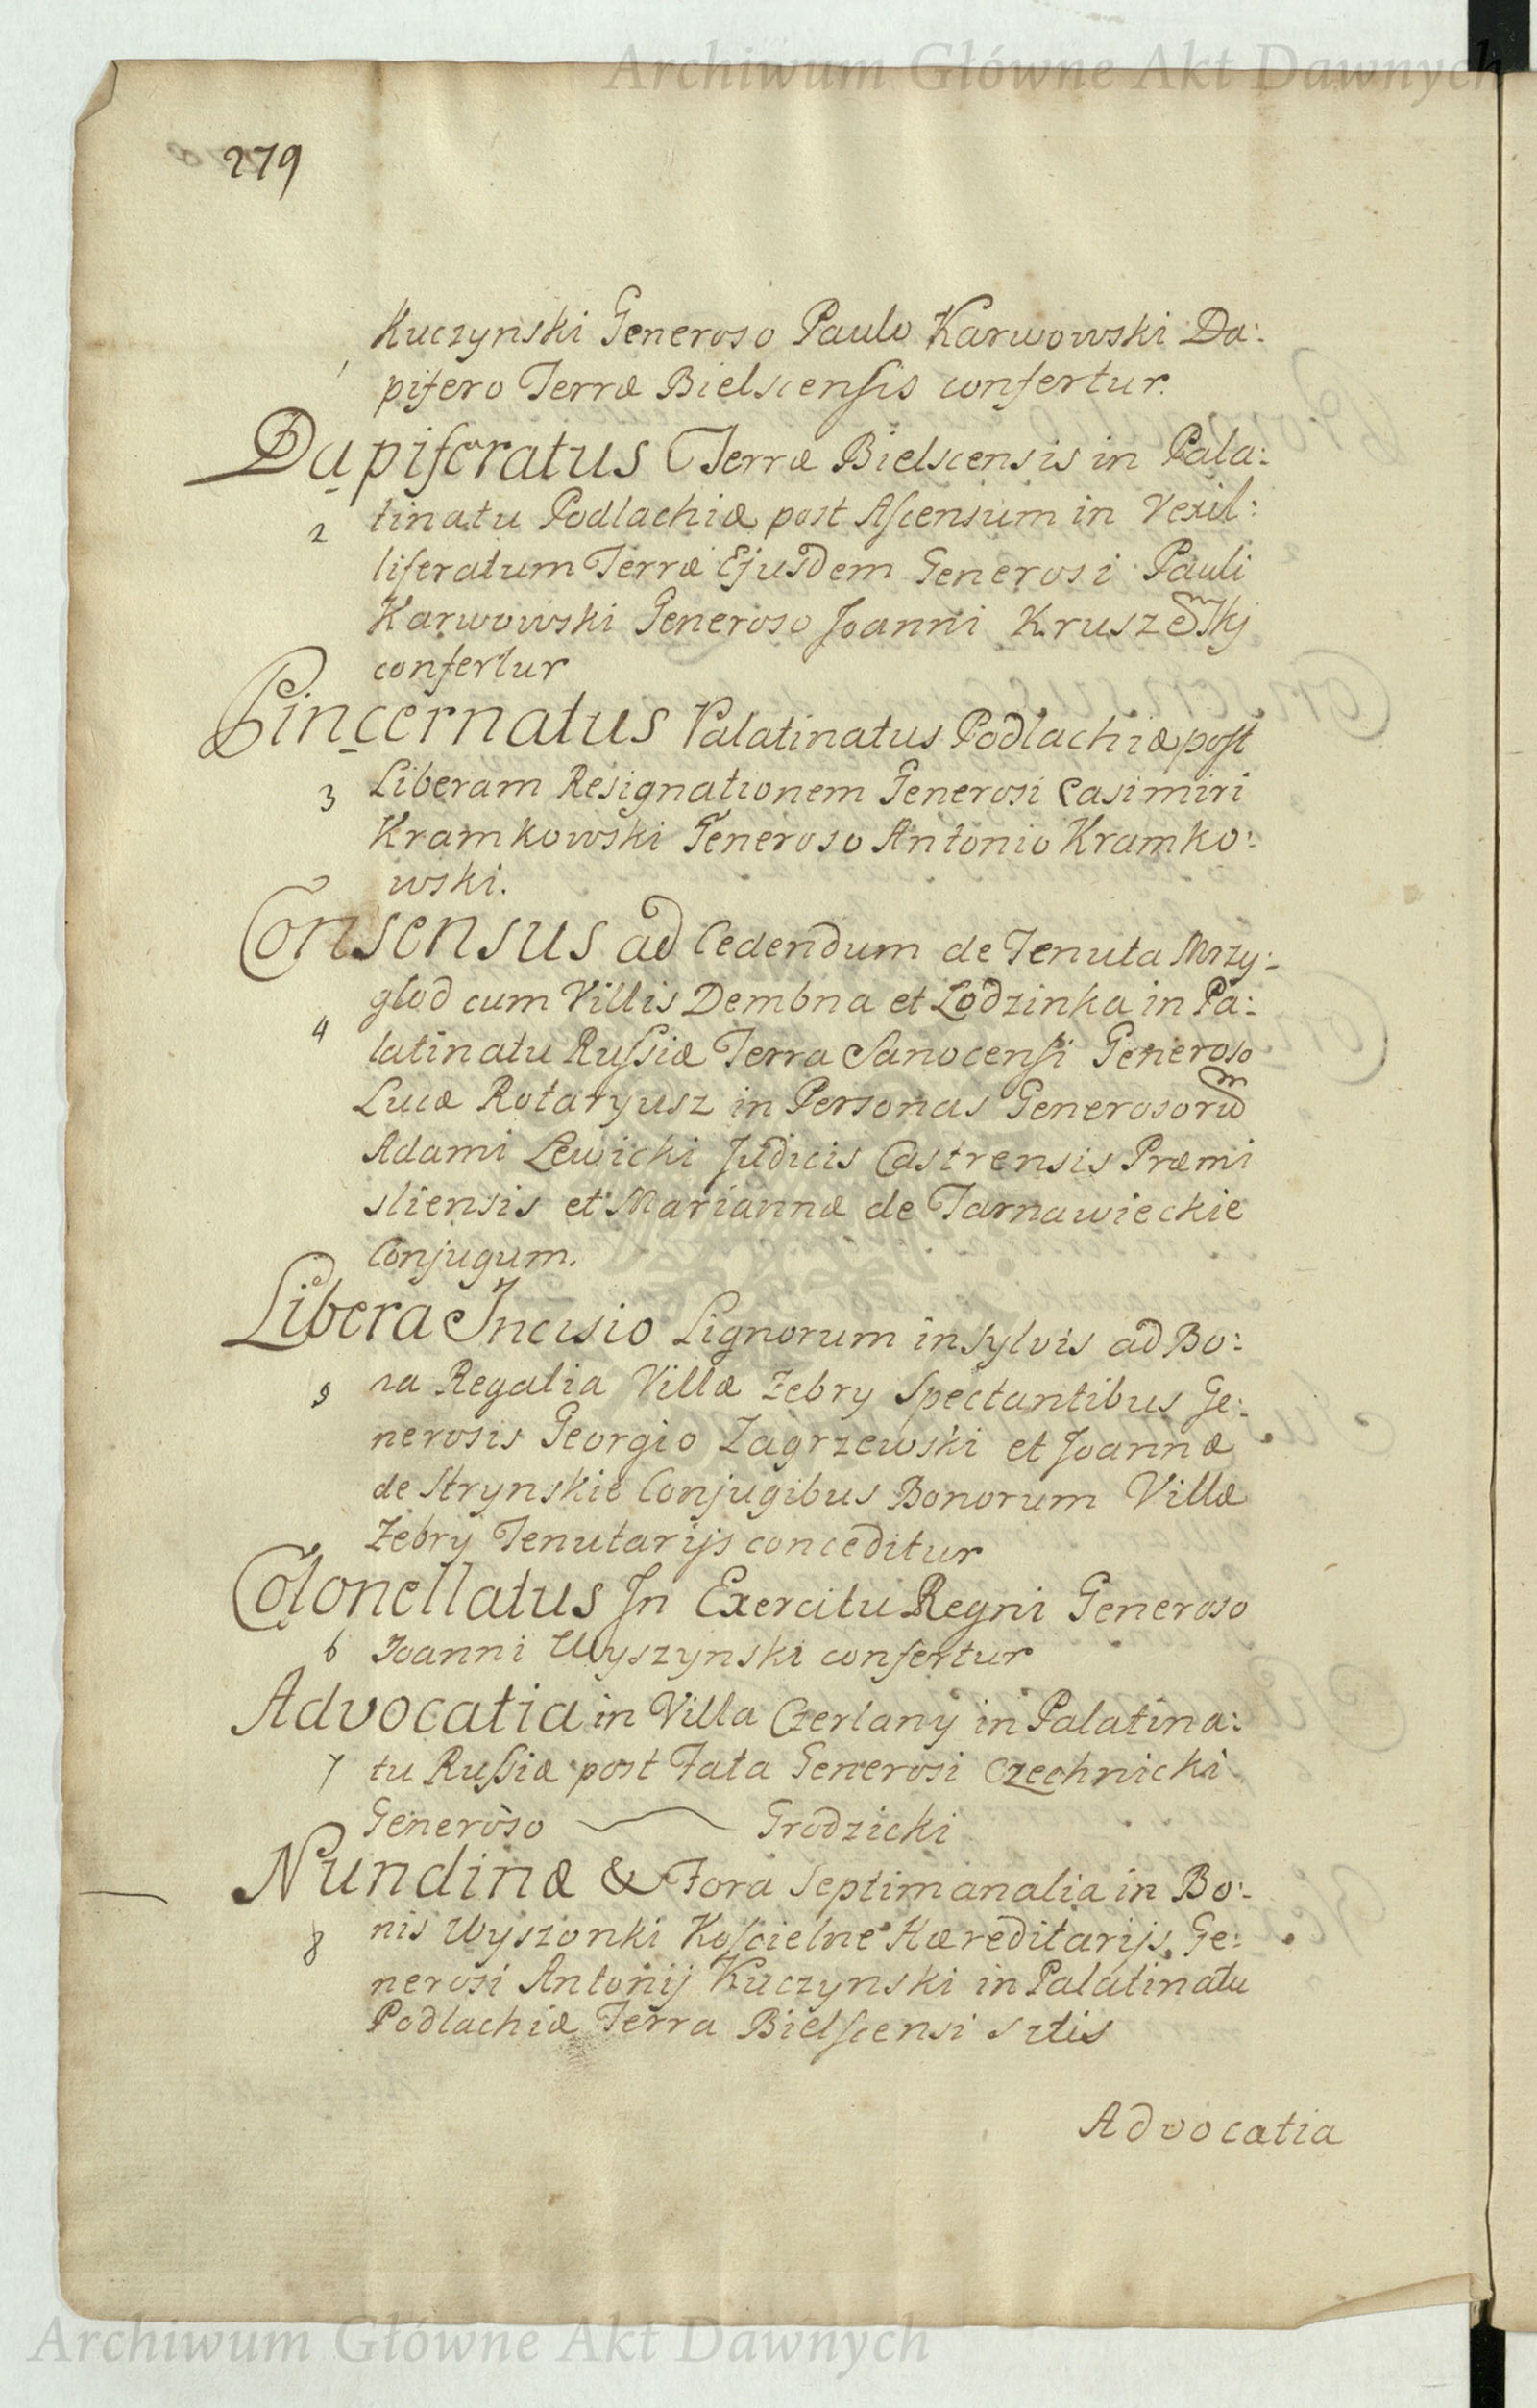 Archiwum Główne Akt Dawnych
279
Kuczynski Generoso Paulo Karwowski Da:
1 pifero Terræ Bielscensis confertur.
Dapiferatus Terræ Bielscensis in Pala:
2 tinatu Podlachiæ post Ascensum in Vexil:
liferatum Terræ Ejusdem Generosi Pauli
Karwowski Generoso Joanni
confertur
Pincernatus Palatinatus Podlachiæ post
3 Liberam Resignationem Generosi Casimiri
Kramkowski Generoso Antonio Kramko:
wski.
Consensus ad Cedendum de Tenuta Mrzy:
glod cum Villis Dembna et Lodzinka in Pa:
4 latinatu Russiæ Terra Sanocensi Generoso
Lucæ Rotaryusz in Personas Generosorũ
Adami Lewicki Judicis Castrensis Præmi
sliensis et Mariannæ de Tarnawieckie
Conjugum.
Libera Incisio Lignorum in Sylvis ad Bo:
5 na Regalia Villæ Zebry Spectantibus Ge:
nerosis Georgio Zagrzewski et Joannæ
de Strynskie Conjugibus Bonorum Villæ
Zebry Tenutarijs conceditur
Colonellatus In Exercitu Regni Generoso
6 Joanni Wyszynski confertur
Advocatia in Villa Czerlany in Palatina:
7 tu Russiæ post Fata Generosi Czechnicki
Generoso Grodzicki
Nundinæ & Fora Septimanalia in Bo:
8 nis Wyszonki Koscielne Hæreditarijs Ge:
nerosi Antonij Kuczynski in Palatinatu
Podlachiæ Terra Bielscensi sitis
Advocatia
Archiwum Główne Akt Dawnych